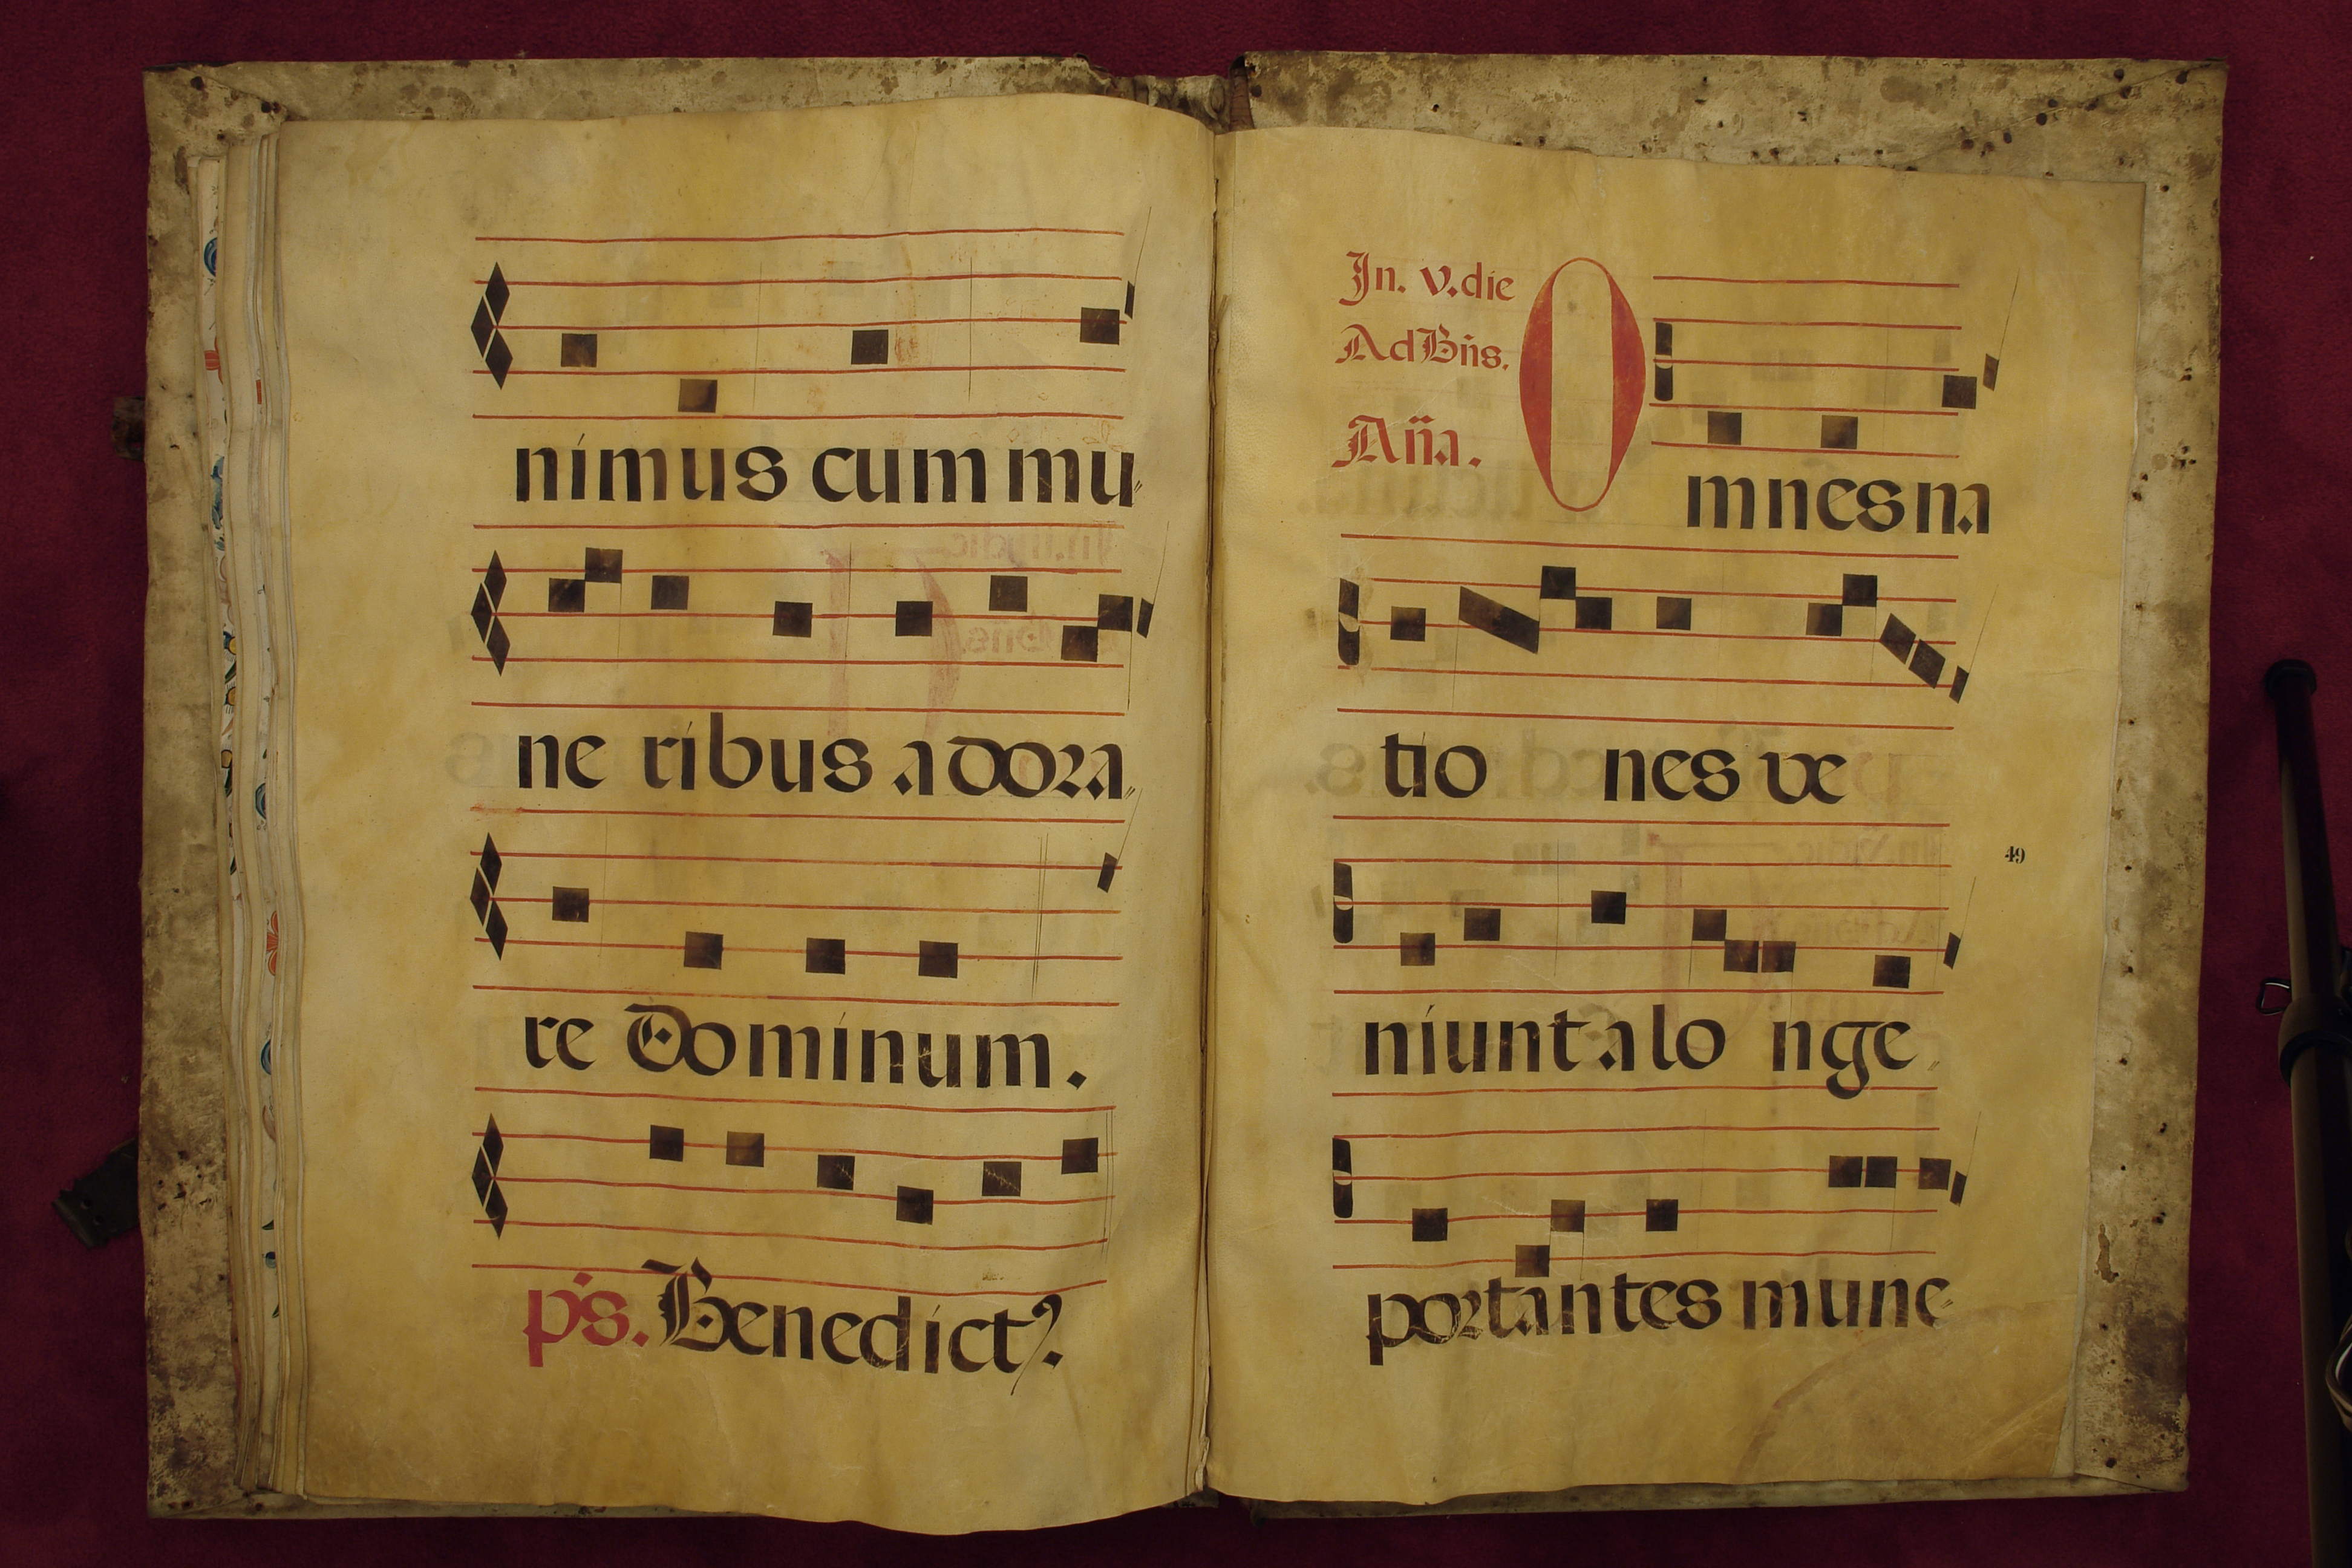 nimus cum mu
ne ribus adora
re Dominum.
ps. Benedict?
In. v. die
Ad Bñs.
Aña.
Omnes na
tio nes ve
niunt a lo nge
portantes mune
49